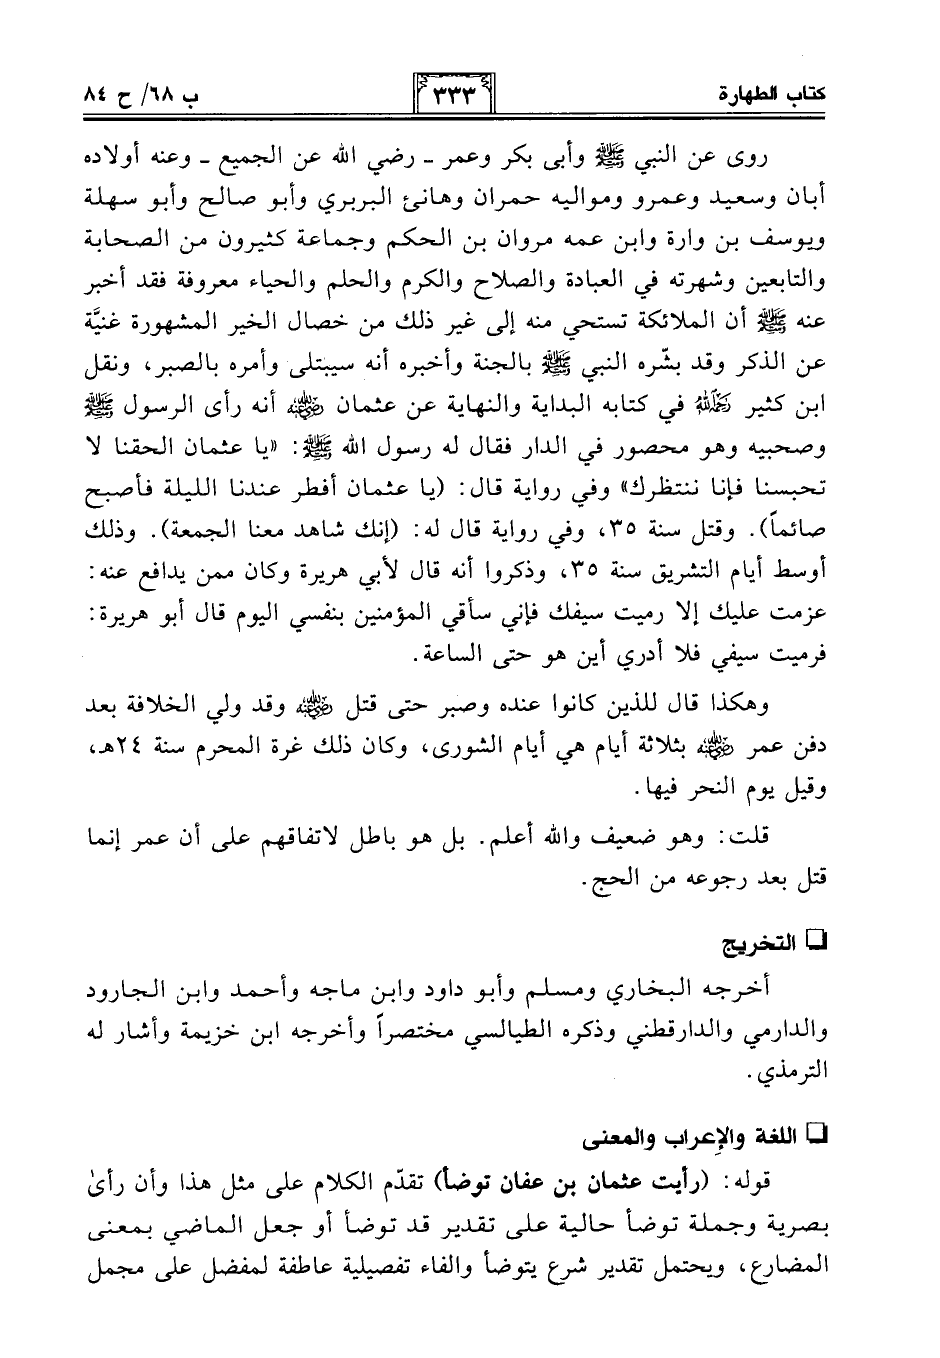 كتاب الطهارة ٣٣٣ ب ٦٨/ ح ٨٤
روى عن النبي ﷺ وأبى بكر وعمر ـ رضي الله عن الجميع ـ وعنه أولاده
أبان وسعيد وعمرو ومواليه حمران وهانئ البربري وأبو صالح وأبو سهلة
ويوسف بن وارة وابن عمه مروان بن الحكم وجماعة كثيرون من الصحابة
والتابعين وشهرته في العبادة والصلاح والكرم والحلم والحياء معروفة فقد أخبر
عنه ﷺ أن الملائكة تستحي منه إلى غير ذلك من خصال الخير المشهورة غنيَّة
عن الذكر وقد بشّره النبي ﷺ بالجنة وأخبره أنه سيبتلى وأمره بالصبر، ونقل
ابن كثير رحمه الله في كتابه البداية والنهاية عن عثمان رضي الله عنه أنه رأى الرسول ﷺ
وصحبيه وهو محصور في الدار فقال له رسول الله ﷺ: «يا عثمان الحقنا لا
تحبسنا فإنا ننتظرك» وفي رواية قال: (يا عثمان أفطر عندنا الليلة فأصبح
صائماً). وقتل سنة ٣٥، وفي رواية قال له: (إنك شاهد معنا الجمعة). وذلك
أوسط أيام التشريق سنة ٣٥، وذكروا أنه قال لأبي هريرة وكان ممن يدافع عنه:
عزمت عليك إلا رميت سيفك فإني سأقي المؤمنين بنفسي اليوم قال أبو هريرة:
فرميت سيفي فلا أدري أين هو حتى الساعة.
وهكذا قال للذين كانوا عنده وصبر حتى قتل رضي الله عنه وقد ولي الخلافة بعد
دفن عمر رضي الله عنه بثلاثة أيام هي أيام الشورى، وكان ذلك غرة المحرم سنة ٢٤هـ،
وقيل يوم النحر فيها.
قلت: وهو ضعيف والله أعلم. بل هو باطل لاتفاقهم على أن عمر إنما
قتل بعد رجوعه من الحج.
❑ التخريج
أخرجه البخاري ومسلم وأبو داود وابن ماجه وأحمد وابن الجارود
والدارمي والدارقطني وذكره الطيالسي مختصراً وأخرجه ابن خزيمة وأشار له
الترمذي.
❑ اللغة والإعراب والمعنى
قوله: (رأيت عثمان بن عفان توضأ) تقدّم الكلام على مثل هذا وأن رأىٰ
بصرية وجملة توضأ حالية على تقدير قد توضأ أو جعل الماضي بمعنى
المضارع، ويحتمل تقدير شرع يتوضأ والفاء تفصيلية عاطفة لمفضل على مجمل